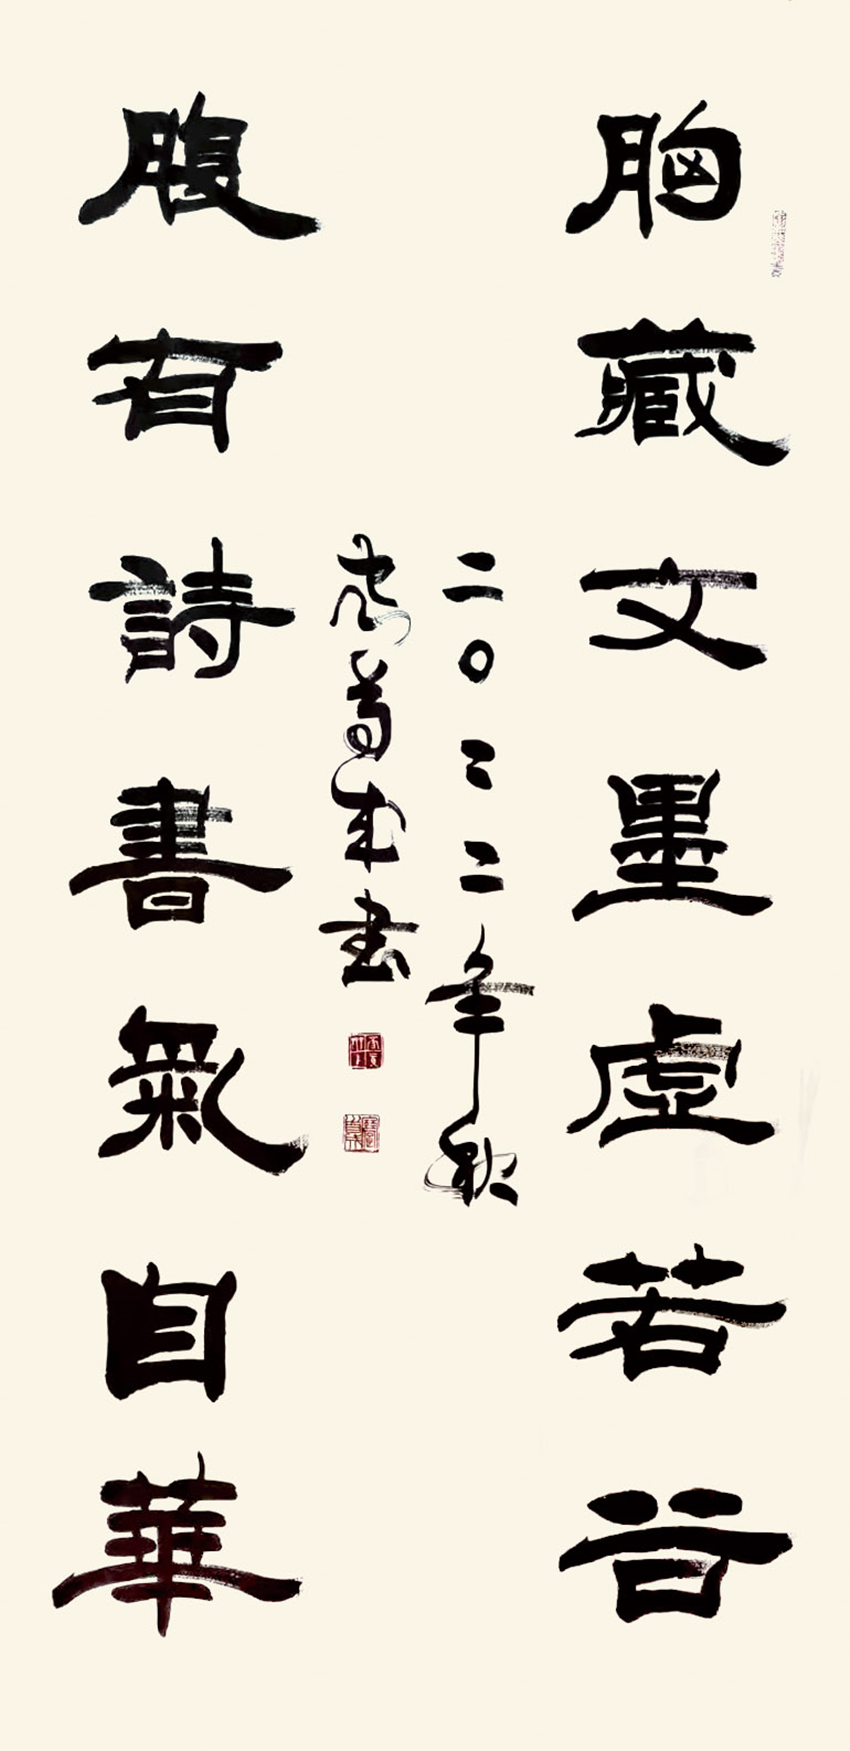 胸藏文墨虛若谷
腹有詩書氣自華
二〇二二年秋
首成书